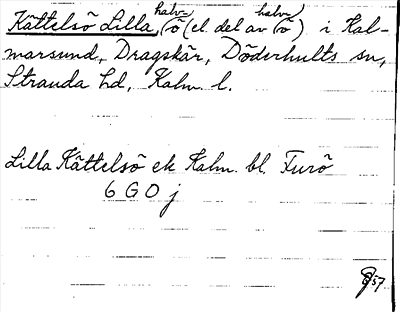 Kättelsö Lilla, halv-(ö (el. del av halv-(ö) i Kal-
marsund, Dragskär, Döderhults sn,
Stranda hd, Kalm. l.
Lilla Kättelsö ek Kalm. bl. Furö
6 G 0 j
57